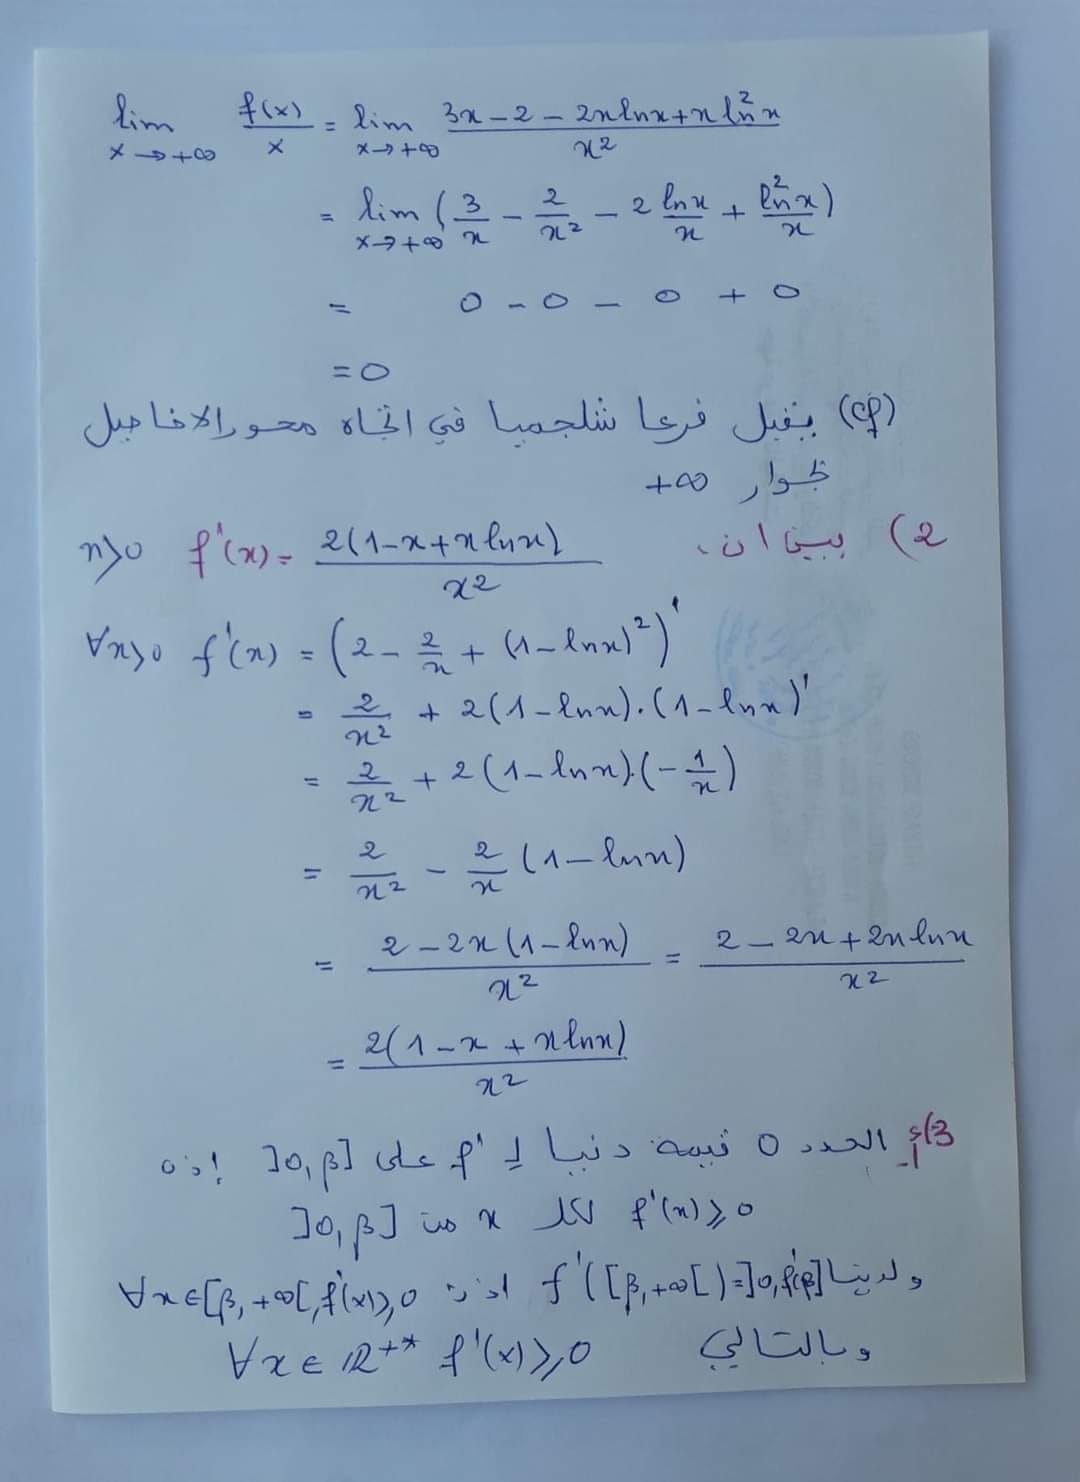 lim x→+∞ f(x)/x = lim x→+∞ (3x - 2 - 2x ln x + x ln² x)/x²
= lim x→+∞ (3/x - 2/x² - 2 ln x/x + ln² x/x)
= 0 - 0 - 0 + 0
= 0
(Cf) يقبل فرعا شلجميا في اتجاه محور الافاصيل
بجوار +∞
2) بين ان: f'(x) = 2(1 - x + x ln x)/x² x>0
∀x>0 f'(x) = (2 - 2/x + (1 - ln x)²)'
= 2/x² + 2(1 - ln x).(1 - ln x)'
= 2/x² + 2(1 - ln x).(-1/x)
= 2/x² - 2/x (1 - ln x)
= (2 - 2x(1 - ln x))/x² = (2 - 2x + 2x ln x)/x²
= 2(1 - x + x ln x)/x²
3/أ- العدد 0 قيمة دنيا لـ f' على ]0,β] إذن
f'(x) ⩾ 0 لكل x من ]0,β]
ولدينا f'([β,+∞[) = ]0,f'(β)] اذن ∀x∈[β,+∞[, f'(x) ⩾ 0
وبالتالي ∀x ∈ IR⁺* f'(x) ⩾ 0